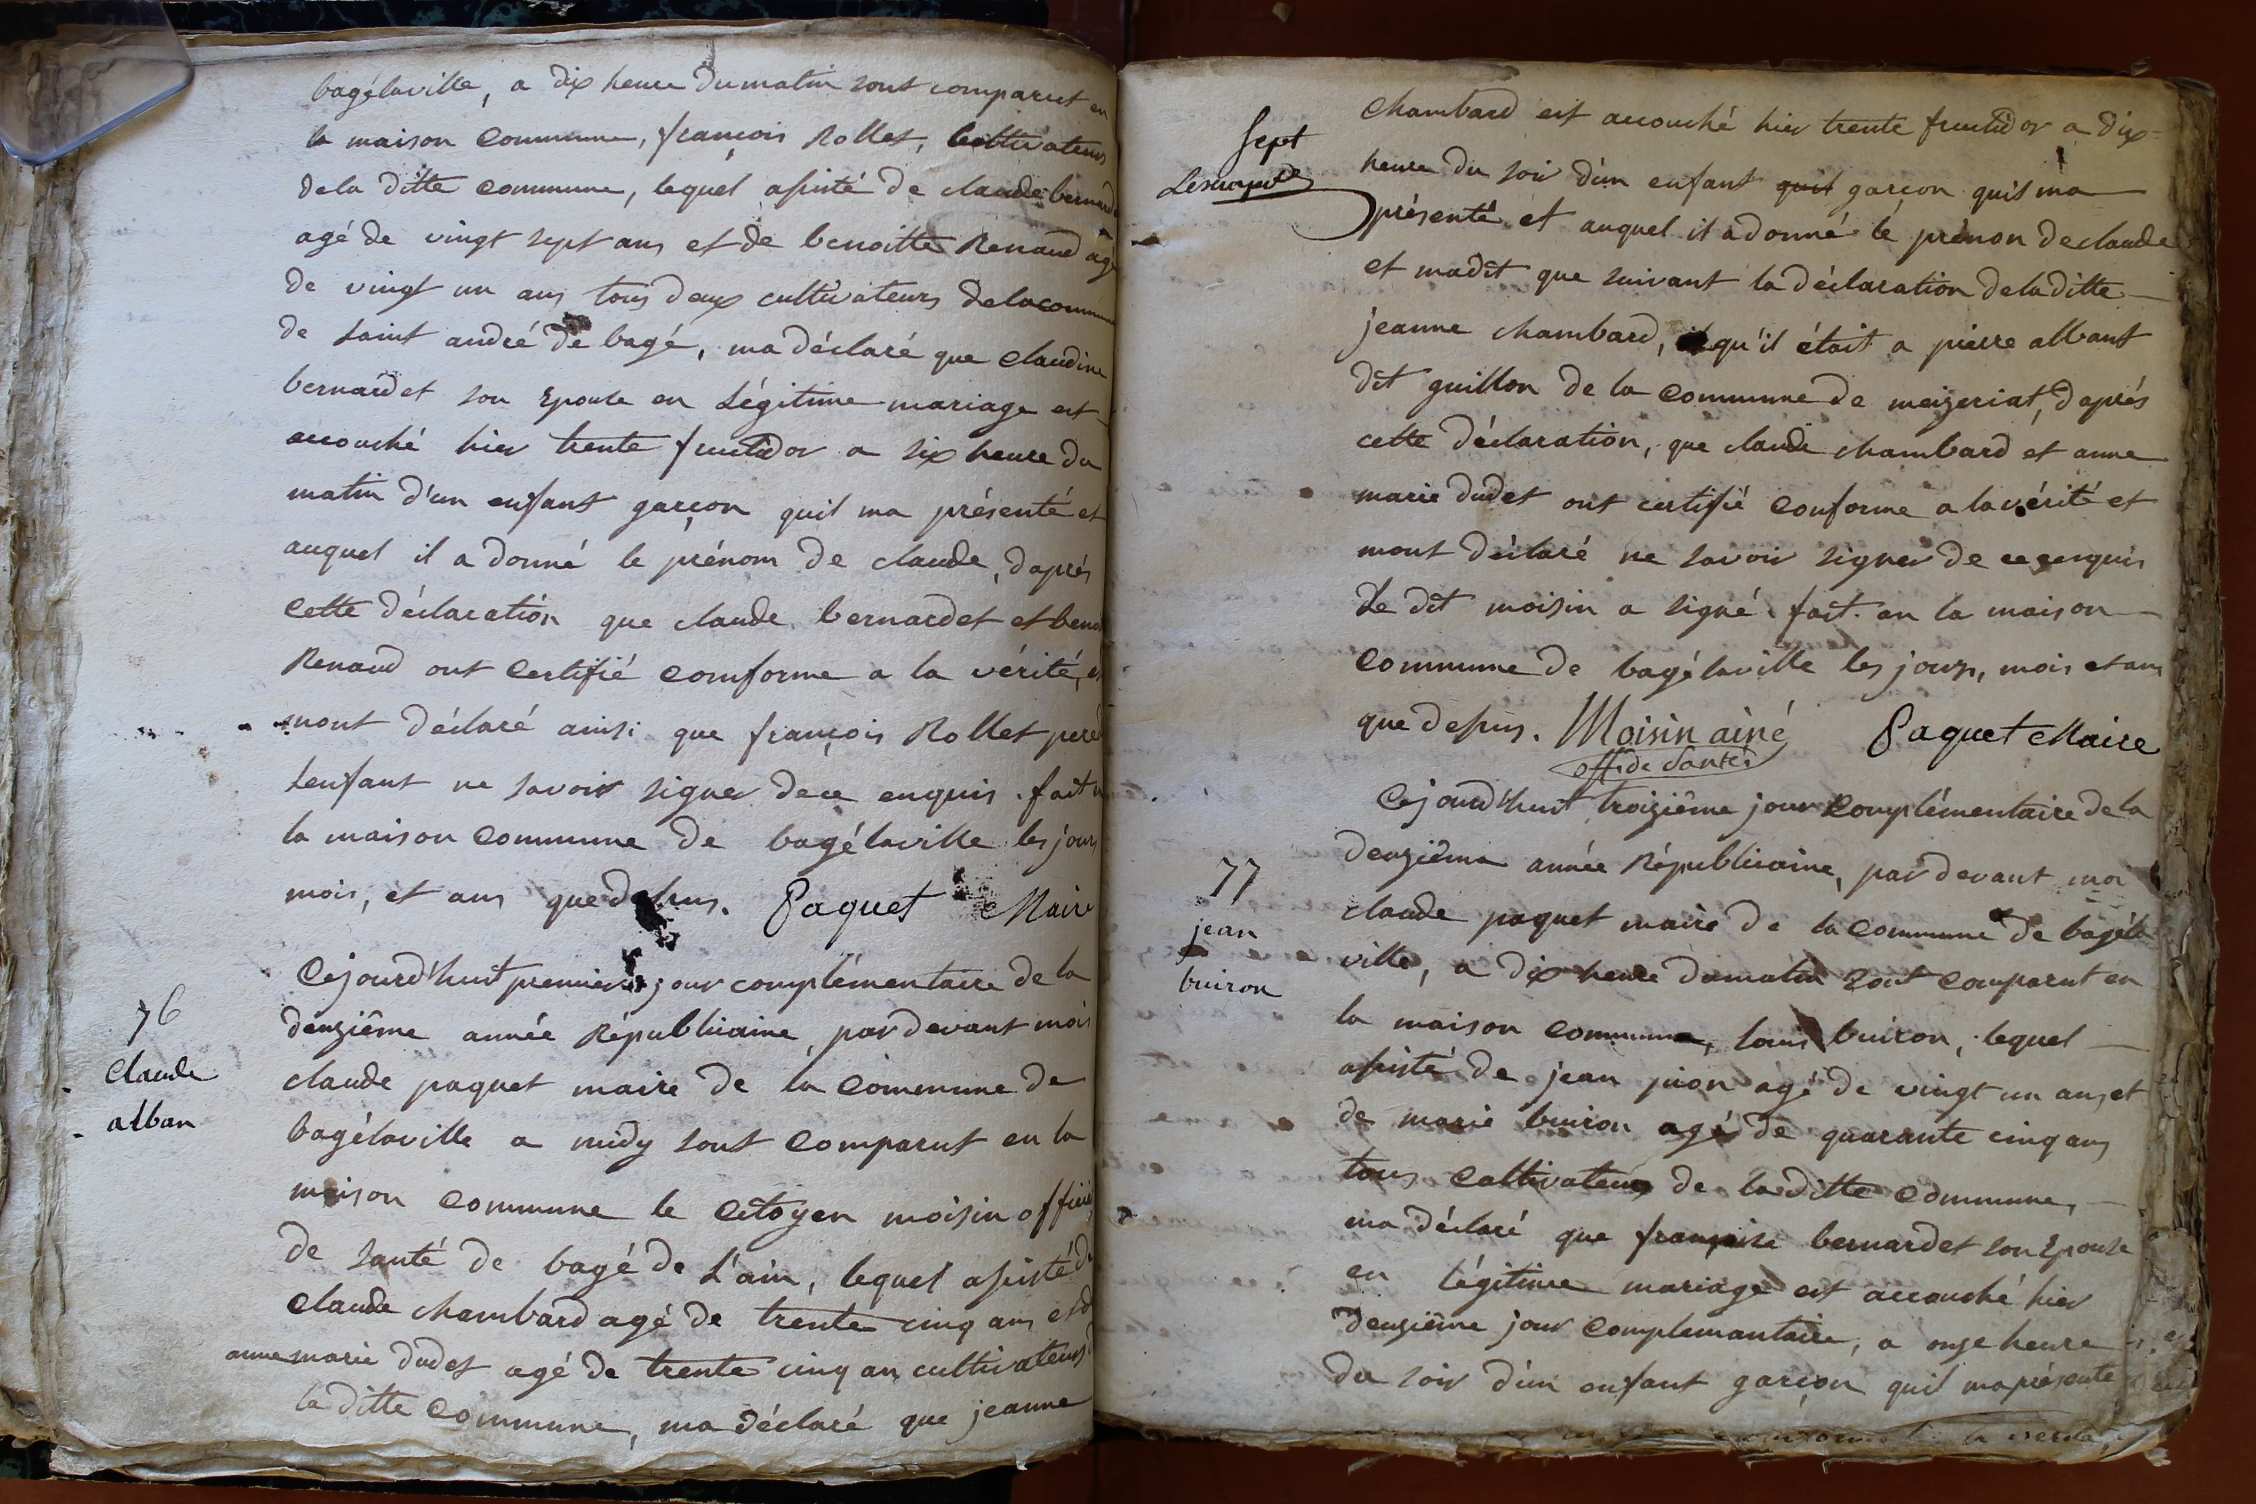 bagélaville, a dix heure du matin sont comparut en
la maison Commune, françois Rollet, Cultivateurs
de la ditte commune, lequel asisté de claude bernardet
agé de vingt sept ans et de benoitte Renaud agé
de vingt un ans tous deux cultivateurs de la commune
de saint andré de bagé, ma déclaré que claudine
bernardet son Epouse en Légitime mariage est
accouché hier trente fructidor a six heure du
matin d'un enfant garçon quil ma présenté et
auquel il a donné le prénom de claude, daprés
Cette déclaration que claude bernardet et benoi
Renaud ont Certifié comforme a la vérité, et
mont déclaré ainsi que françois Rollet pere d
Lenfant ne savoir signer de ce enquis. fait
la maison commune de bagélaville les jours
mois, et ans que desus. Paquet Maire
76
claude
alban
Cejourd'huit premier jour complémentaire de la
deuzième année Républicaine, par devant mois
claude paquet maire de la Commune de
bagélaville a midy sont Comparut en la
maison Commune le Citoyen moisin officié
de santé de bagé de L'ain, lequel asisté de
Claude chambard agé de trente cinq ans et de
anne marie dudet agé de trente cinq an cultivateurs d
la ditte Commune, ma déclaré que jeanne
Sept
Chambard est accouché hier trente fructidor a dix
heure du soir d'un enfant quil garçon quil ma
présenté et auquel il a donné le prénon de claude
et madit que suivant la déclaration de la ditte
jeanne chambard, qu'il était a pierre albant
dit guillon de la Commune de meizeriat, daprés
cette déclaration, que claude chambard et anne
marie dudet ont certifié Conforme a la vérité et
mont déclaré ne savoir signer de ce enquis
Le dit moisin a signé. fait en la maison
Commune de bagélaville les jours, mois et ans
que desus. Moisin ainé Paquet Maire
off. de Santé
77
jean
buiron
Cejourd'huit troizième jour Complémentaire de la
deuzième année Républicaine, par devant moi
claude paquet maire de la Commune de bagéla
ville, a dix heure du matin sont Comparut en
la maison commune, louis buiron, lequel
asisté de jean pion agé de vingt un ans et
de marie buiron agé de quarante cinq ans
tous Cultivateurs de la ditte Commune,
ma déclaré que françoise bernardet son Epouse
en Légitime mariage est accouché hier
deuzième jour Complemantaire, a onze heure
du soir d'un enfant garçon quil ma présenté